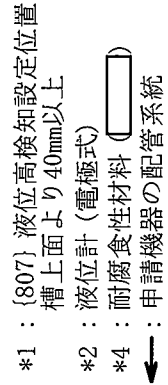 *1 : {807} 液位高検知設定位置
槽上面より40mm以上
*2 : 液位計 (電極式)
*4 : 耐腐食性材料 ( )
: 申請機器の配管系統